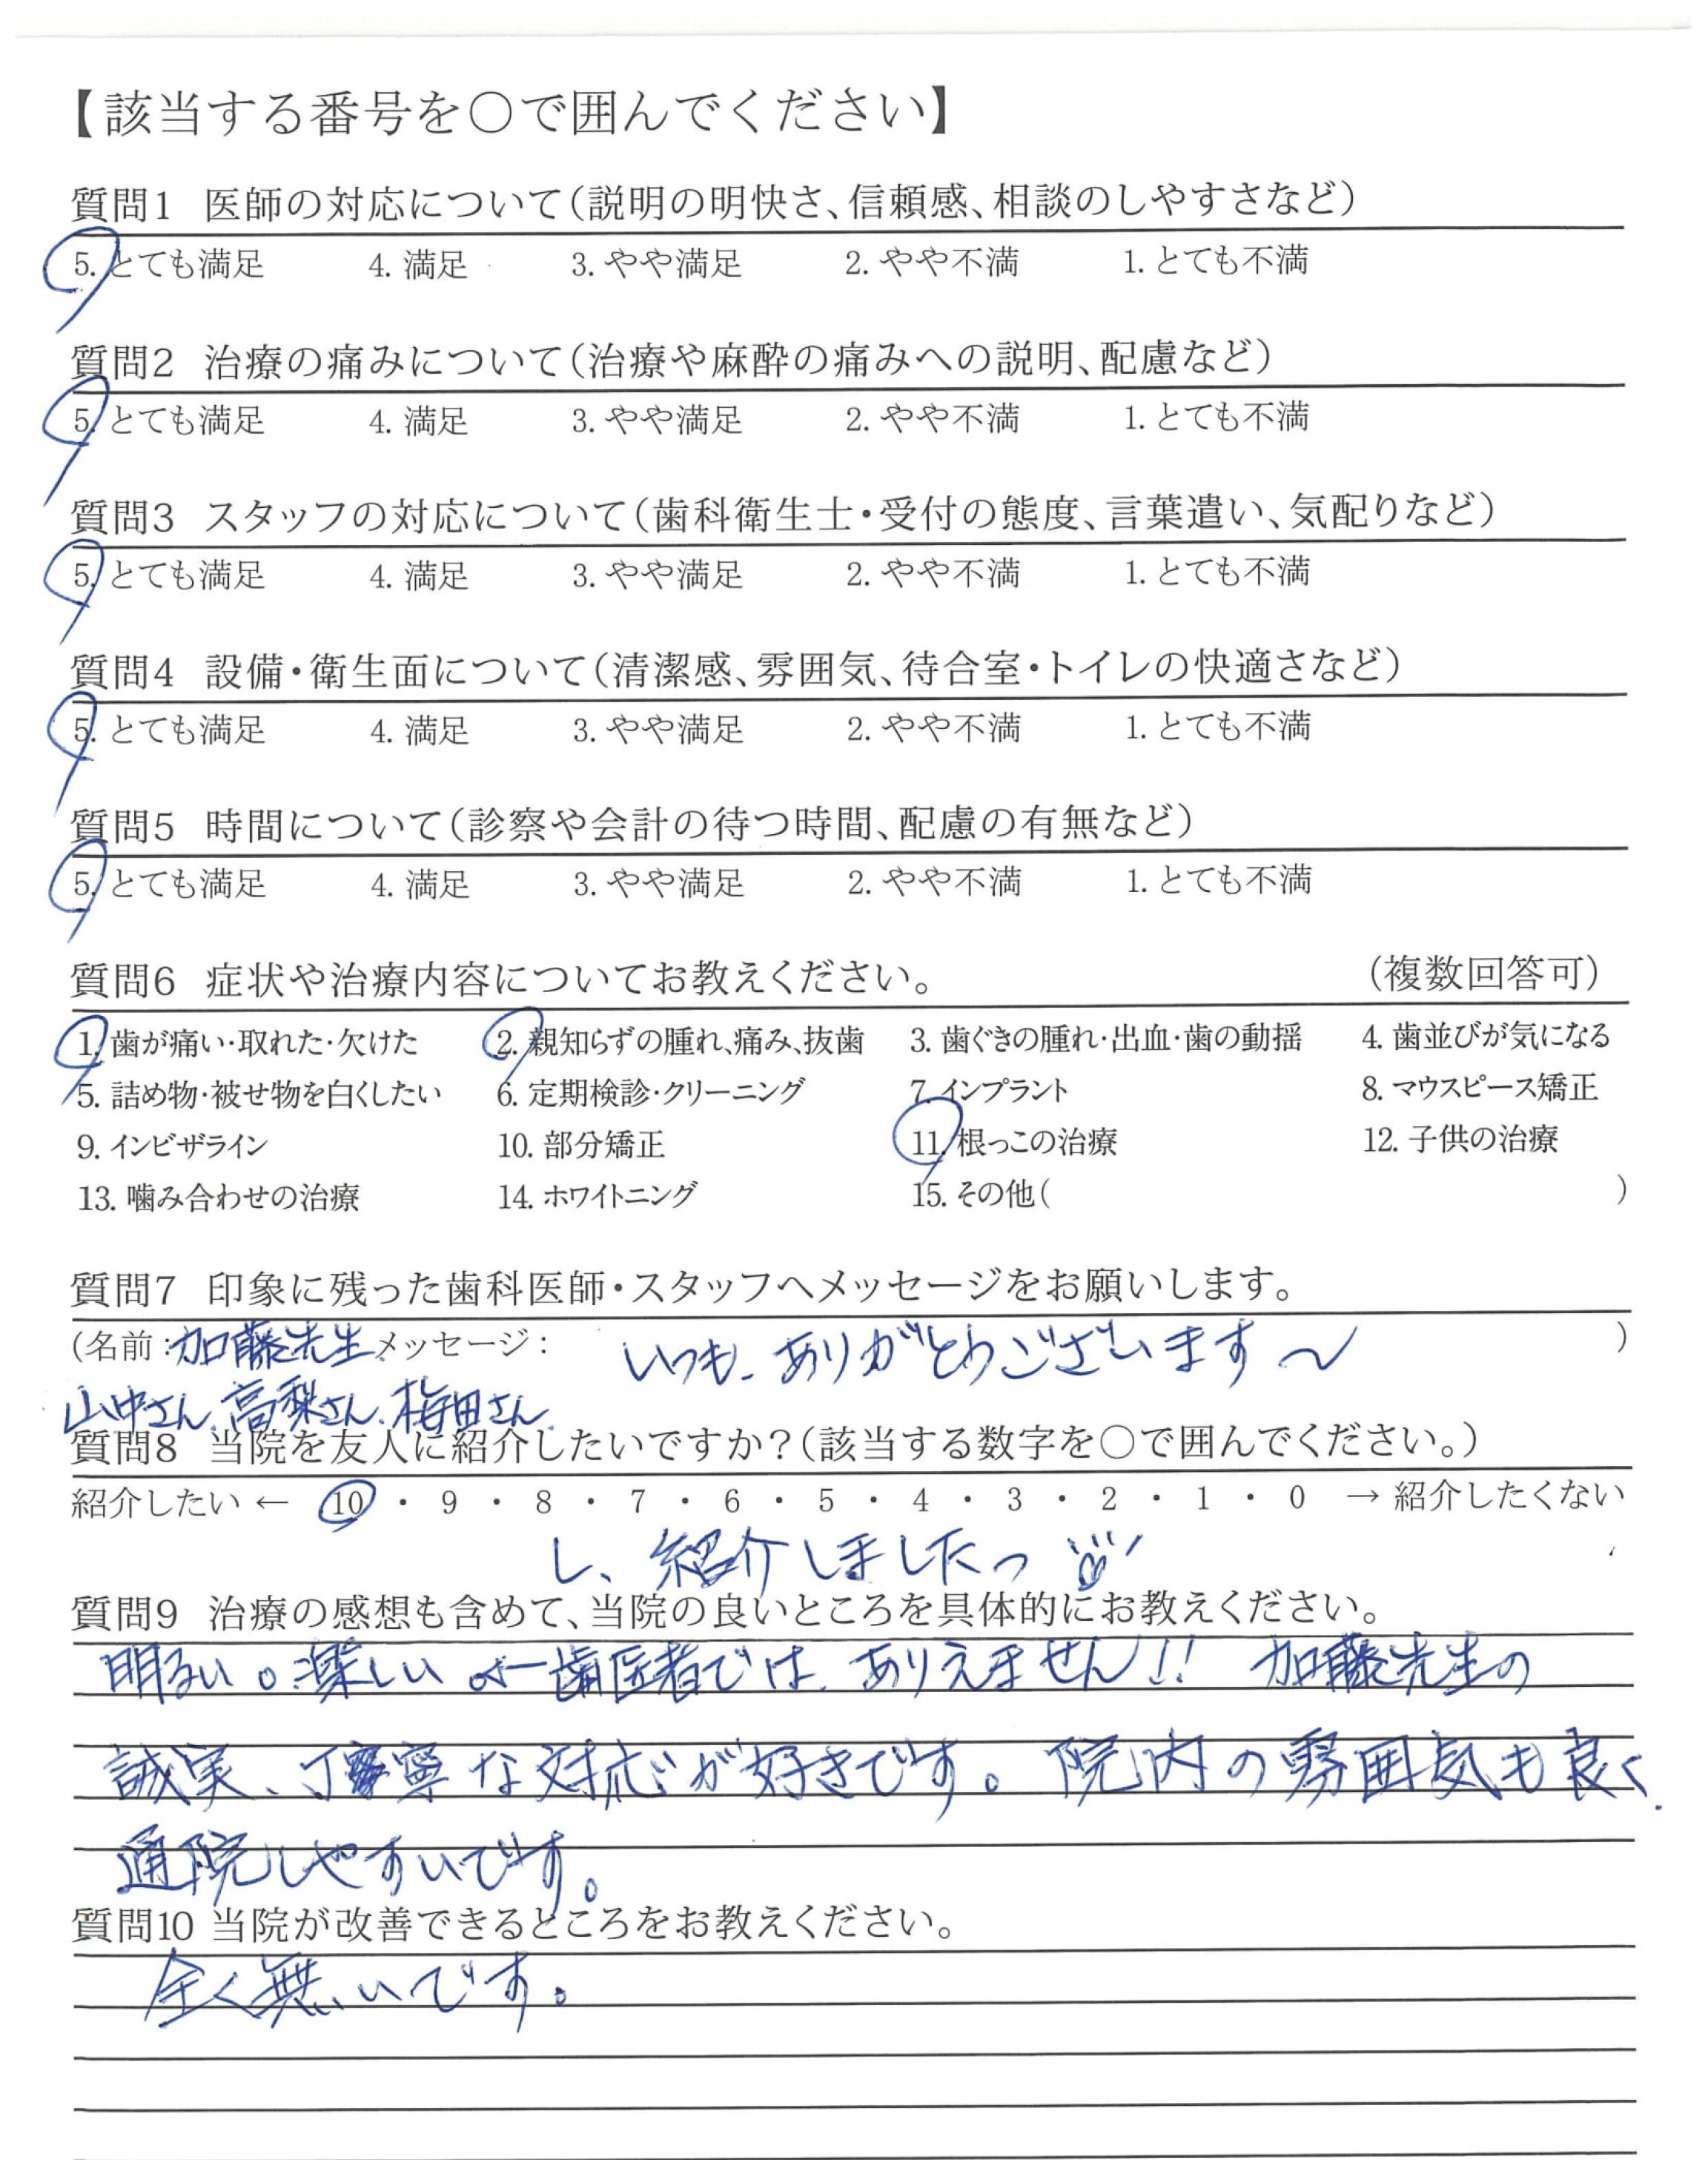 【該当する番号を〇で囲んでください】
質問1 医師の対応について(説明の明快さ、信頼感、相談のしやすさなど)
5. とても満足 4. 満足 3. やや満足 2. やや不満 1. とても不満
質問2 治療の痛みについて(治療や麻酔の痛みへの説明、配慮など)
5. とても満足 4. 満足 3. やや満足 2. やや不満 1. とても不満
質問3 スタッフの対応について(歯科衛生士・受付の態度、言葉遣い、気配りなど)
5. とても満足 4. 満足 3. やや満足 2. やや不満 1. とても不満
質問4 設備・衛生面について(清潔感、雰囲気、待合室・トイレの快適さなど)
5. とても満足 4. 満足 3. やや満足 2. やや不満 1. とても不満
質問5 時間について(診察や会計の待つ時間、配慮の有無など)
5. とても満足 4. 満足 3. やや満足 2. やや不満 1. とても不満
質問6 症状や治療内容についてお教えください。 (複数回答可)
1. 歯が痛い・取れた・欠けた 2. 親知らずの腫れ、痛み、抜歯 3. 歯ぐきの腫れ・出血・歯の動揺 4. 歯並びが気になる
5. 詰め物・被せ物を白くしたい 6. 定期検診・クリーニング 7. インプラント 8. マウスピース矯正
9. インビザライン 10. 部分矯正 11. 根っこの治療 12. 子供の治療
13. 噛み合わせの治療 14. ホワイトニング 15. その他( )
質問7 印象に残った歯科医師・スタッフへメッセージをお願いします。
(名前:加藤先生 メッセージ: いつも、ありがとうございます〜 )
山中さん、高梨さん、梅田さん、
質問8 当院を友人に紹介したいですか?(該当する数字を〇で囲んでください。)
紹介したい ← 10 ・ 9 ・ 8 ・ 7 ・ 6 ・ 5 ・ 4 ・ 3 ・ 2 ・ 1 ・ 0 → 紹介したくない
し、紹介しましたっ
質問9 治療の感想も含めて、当院の良いところを具体的にお教えください。
明るい。楽しい ← 歯医者では、ありえません!! 加藤先生の
誠実、丁寧な対応が好きです。院内の雰囲気も良く、
通院しやすいです。
質問10 当院が改善できるところをお教えください。
全く無いです。